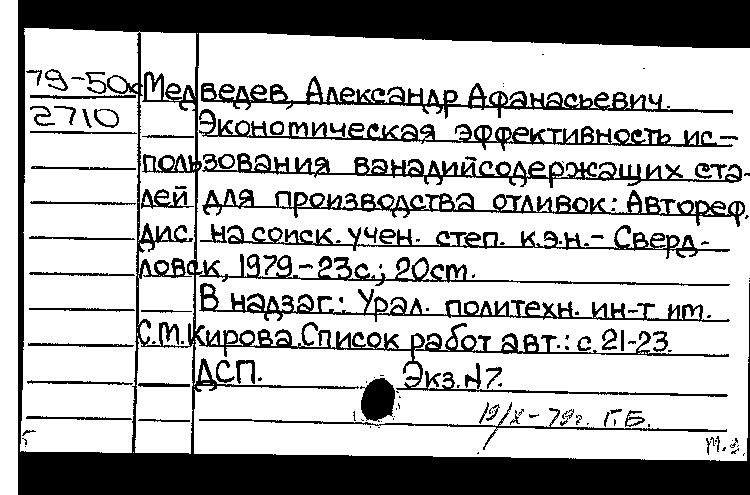 79-50к Медведев, Александр Афанасьевич.
2710 Экономическая эффективность ис-
пользования ванадийсодержащих ста-
лей для производства отливок: Автореф.
дис. на соиск. учен. степ. к.э.н. - Сверд-
ловск, 1979. - 23с.; 20см.
В надзаг.: Урал. политехн. ин-т им.
С.М.Кирова. Список работ авт.: с.21-23.
ДСП. Экз.N7.
19/X-79г. Г.Б.